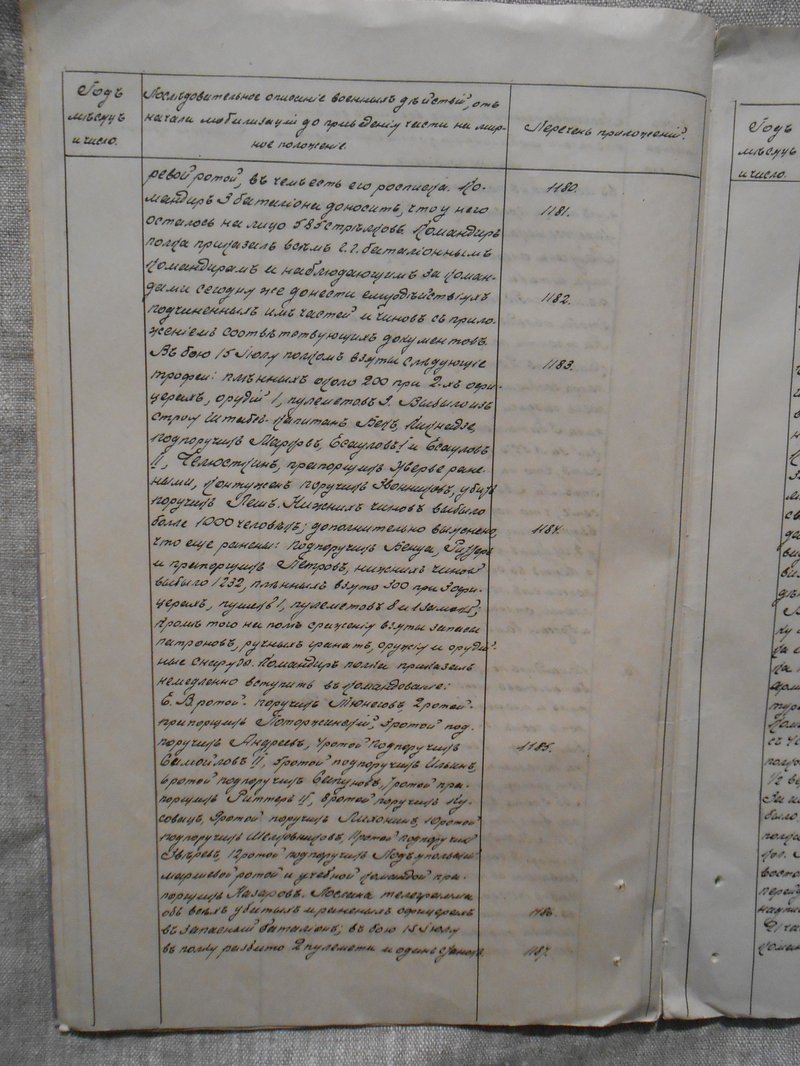 Годъ
мѣсяцъ
и число.
Послѣдовательное описаніе военныхъ дѣйствій, отъ
начала мобилизаціи до приведенія части на мир-
ное положеніе.
Перечень приложеній.
ревой ротой, въ чемъ есть его росписка. Ко- 1180.
мандиръ 3 баталіона доноситъ, что у него 1181.
осталось на лицо 585 стрѣлковъ. Командиръ
полка приказалъ всѣмъ г.г. баталіоннымъ
командирамъ и наблюдающимъ за коман-
дами сегодня же донести ему о дѣйствіяхъ 1182.
подчиненныхъ имъ частей и чиновъ съ прило-
женіемъ соотвѣтствующихъ документовъ.
Въ бою 15 Іюля полкомъ взяты слѣдующіе 1183.
трофеи: плѣнныхъ около 200 при 2-хъ офи-
церахъ, орудій 1, пулеметовъ 3. Выбыло изъ
строя Штабсъ-Капитанъ Бекъ,
подпоручикъ Марковъ, Есауловъ I и Есауловъ
II, Челюсткинъ, прапорщикъ Зверве ране-
ными, контуженъ поручикъ Звонниковъ, убитъ
поручикъ Лешъ. Нижнихъ чиновъ выбыло
болѣе 1000 человѣкъ; дополнительно выяснено, 1184.
что еще ранены: подпоручикъ Бенуа,
и прапорщикъ Петровъ, нижнихъ чиновъ
выбыло 1232, плѣнныхъ взято 300 при 3 офи-
церахъ, пушекъ 1, пулеметовъ 8 и 1 замокъ;
кромѣ того на полѣ сраженія взяты запасы
патроновъ, ручныхъ гранатъ, оружія и орудій-
ные снаряды. Командиръ полка приказалъ
немедленно вступить въ командованіе:
Е. В. ротой - поручикъ Тюнеговъ, 2 ротой -
прапорщикъ Поторжинскій, 3 ротой под-
поручикъ Андреевъ, 4 ротой подпоручикъ 1185.
Самойловъ II, 5 ротой подпоручикъ Ильинъ,
6 ротой подпоручикъ Сапуновъ, 7 ротой пра-
порщикъ Риттеръ II, 8 ротой поручикъ Ку-
совацъ, 9 ротой поручикъ Лихонинъ, 10 ротой
подпоручикъ Шелковниковъ, 11 ротой подпоручикъ
Звѣревъ, 12 ротой подпоручикъ
маршевой ротой и учебной командой пра-
порщикъ Назаровъ. Послана телеграмма
объ всѣхъ убитыхъ и раненыхъ офицерахъ 1186.
въ запасный баталіонъ; въ бою 15 Іюля
въ полку разбито 2 пулемета и одинъ 1187.
Годъ
мѣсяцъ
и число.